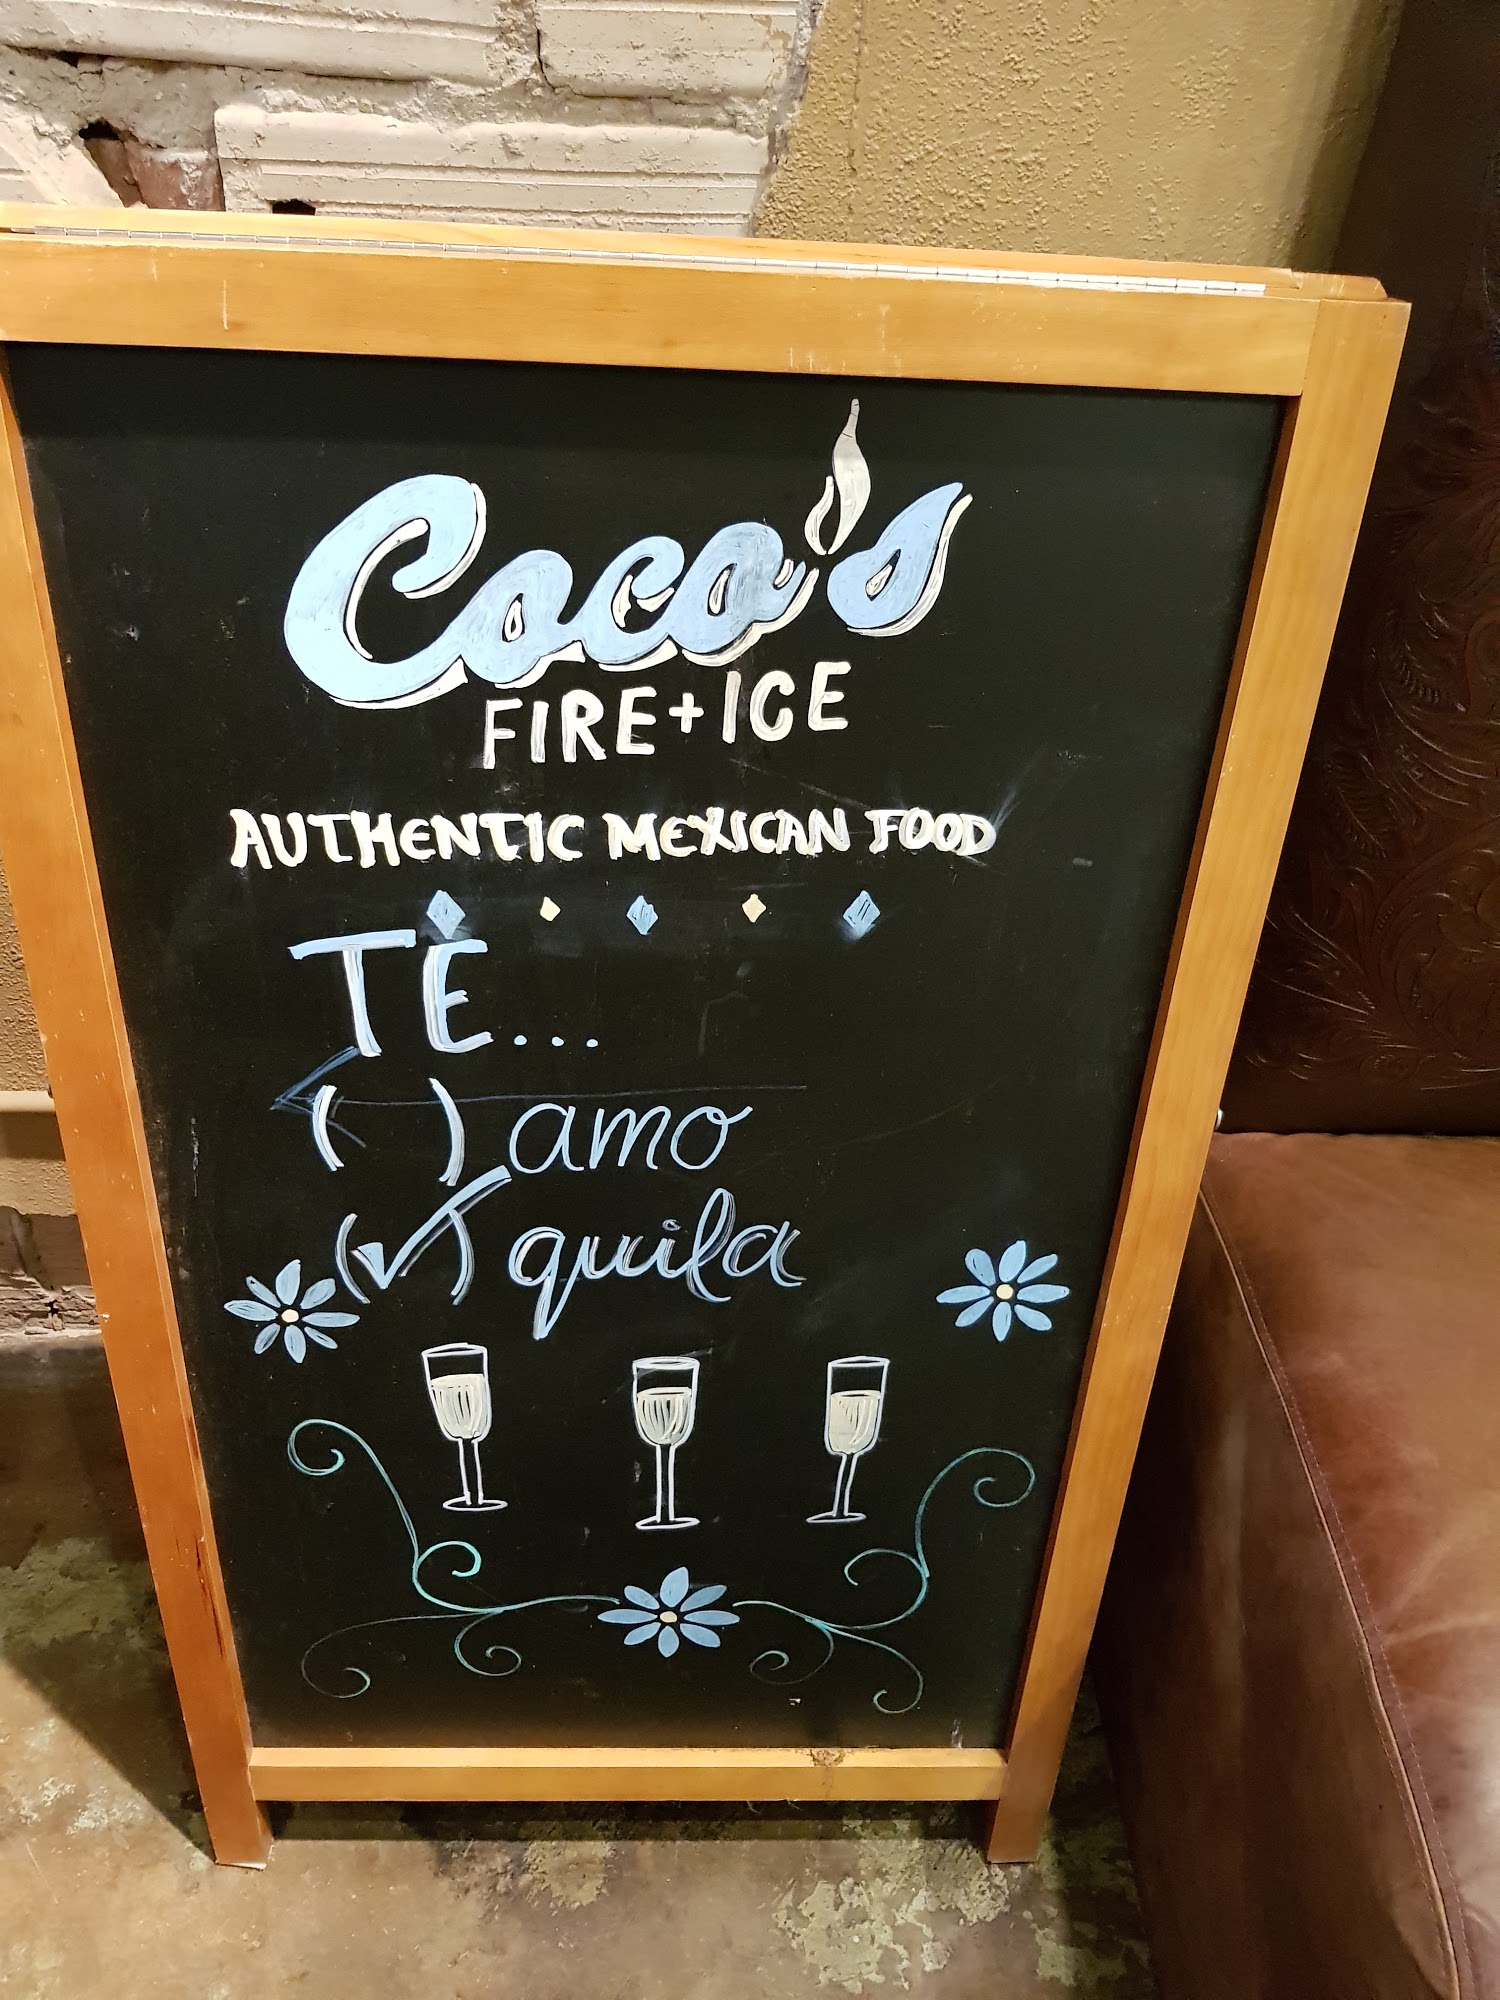 Coco's
FIRE+ICE
AUTHENTIC MEXICAN FOOD
TE...
( ) amo
(✓) quila